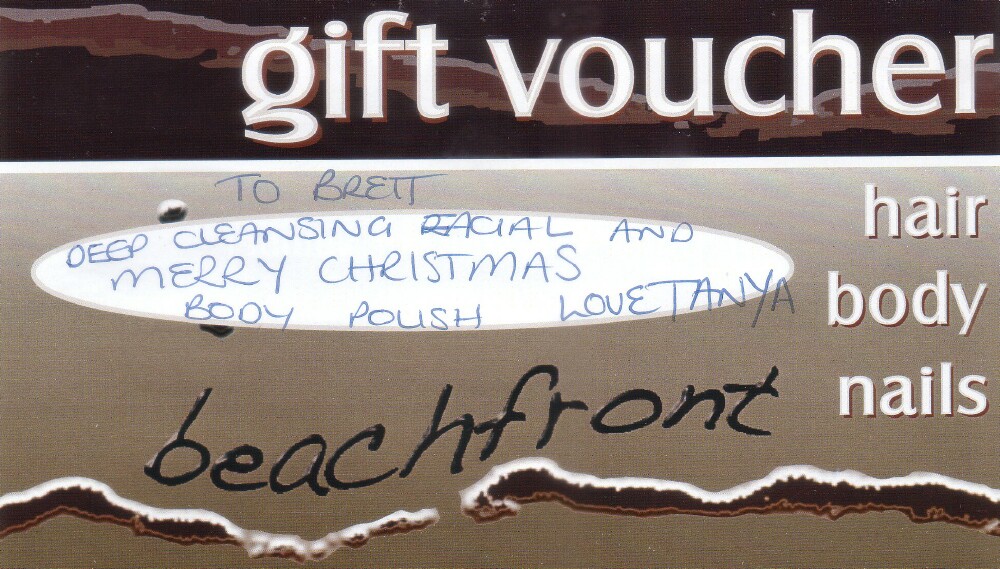 gift voucher
TO BRETT
DEEP CLEANSING FACIAL AND
MERRY CHRISTMAS
BODY POLISH LOVE TANYA
hair
body
nails
beachfront